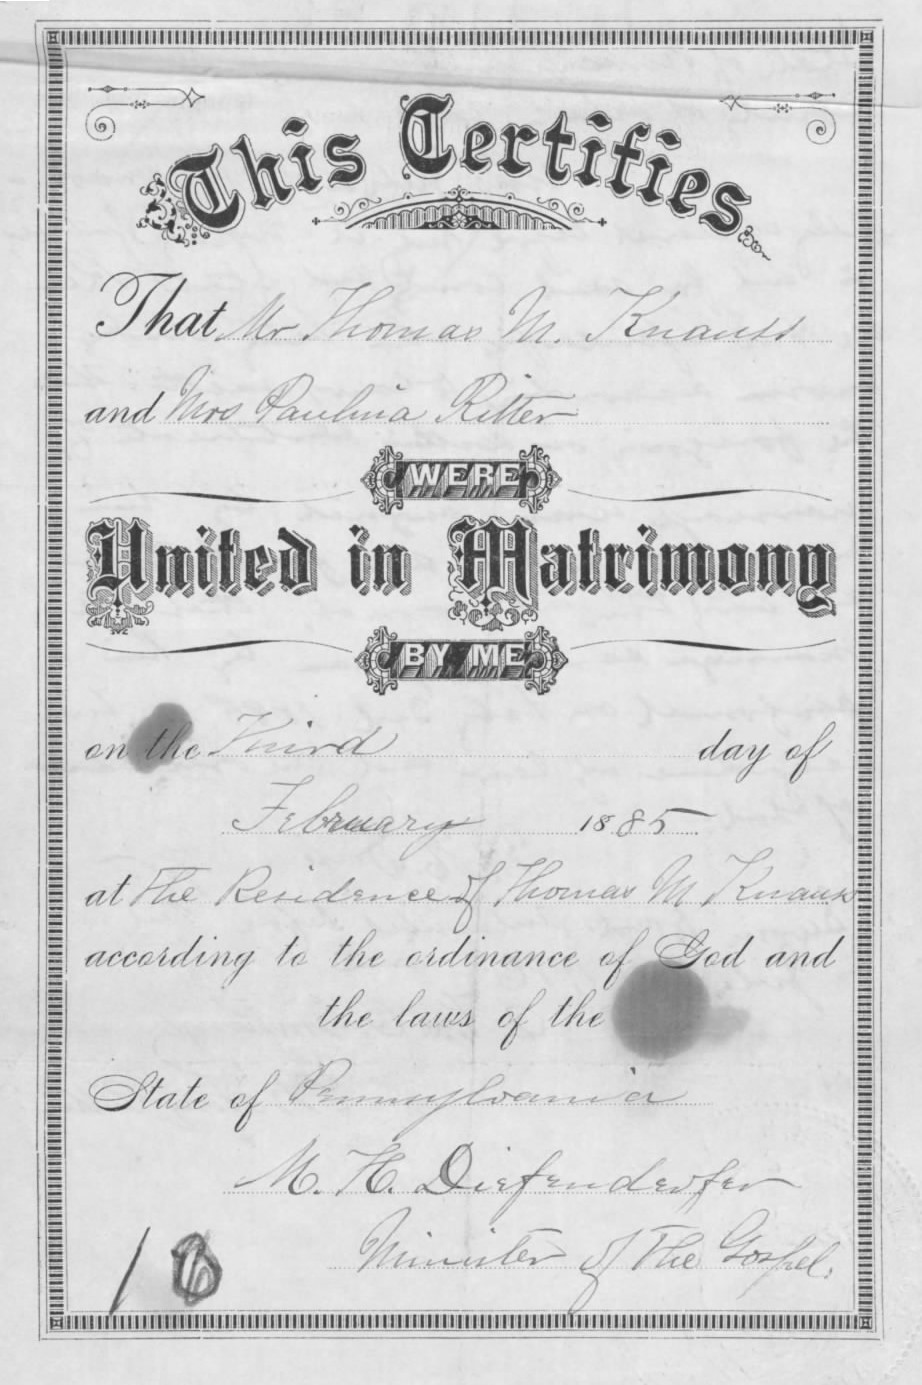 This Certifies
That Mr Thomas M. Knauss
and Mrs Paulina Ritter
WERE
United in Matrimony
BY ME
on the Third day of
February 1885
at The Residence of Thomas M Knauss
according to the ordinance of God and
the laws of the
State of Pennsylvania
M. H. Diefenderfer
Minister of The Gospel.